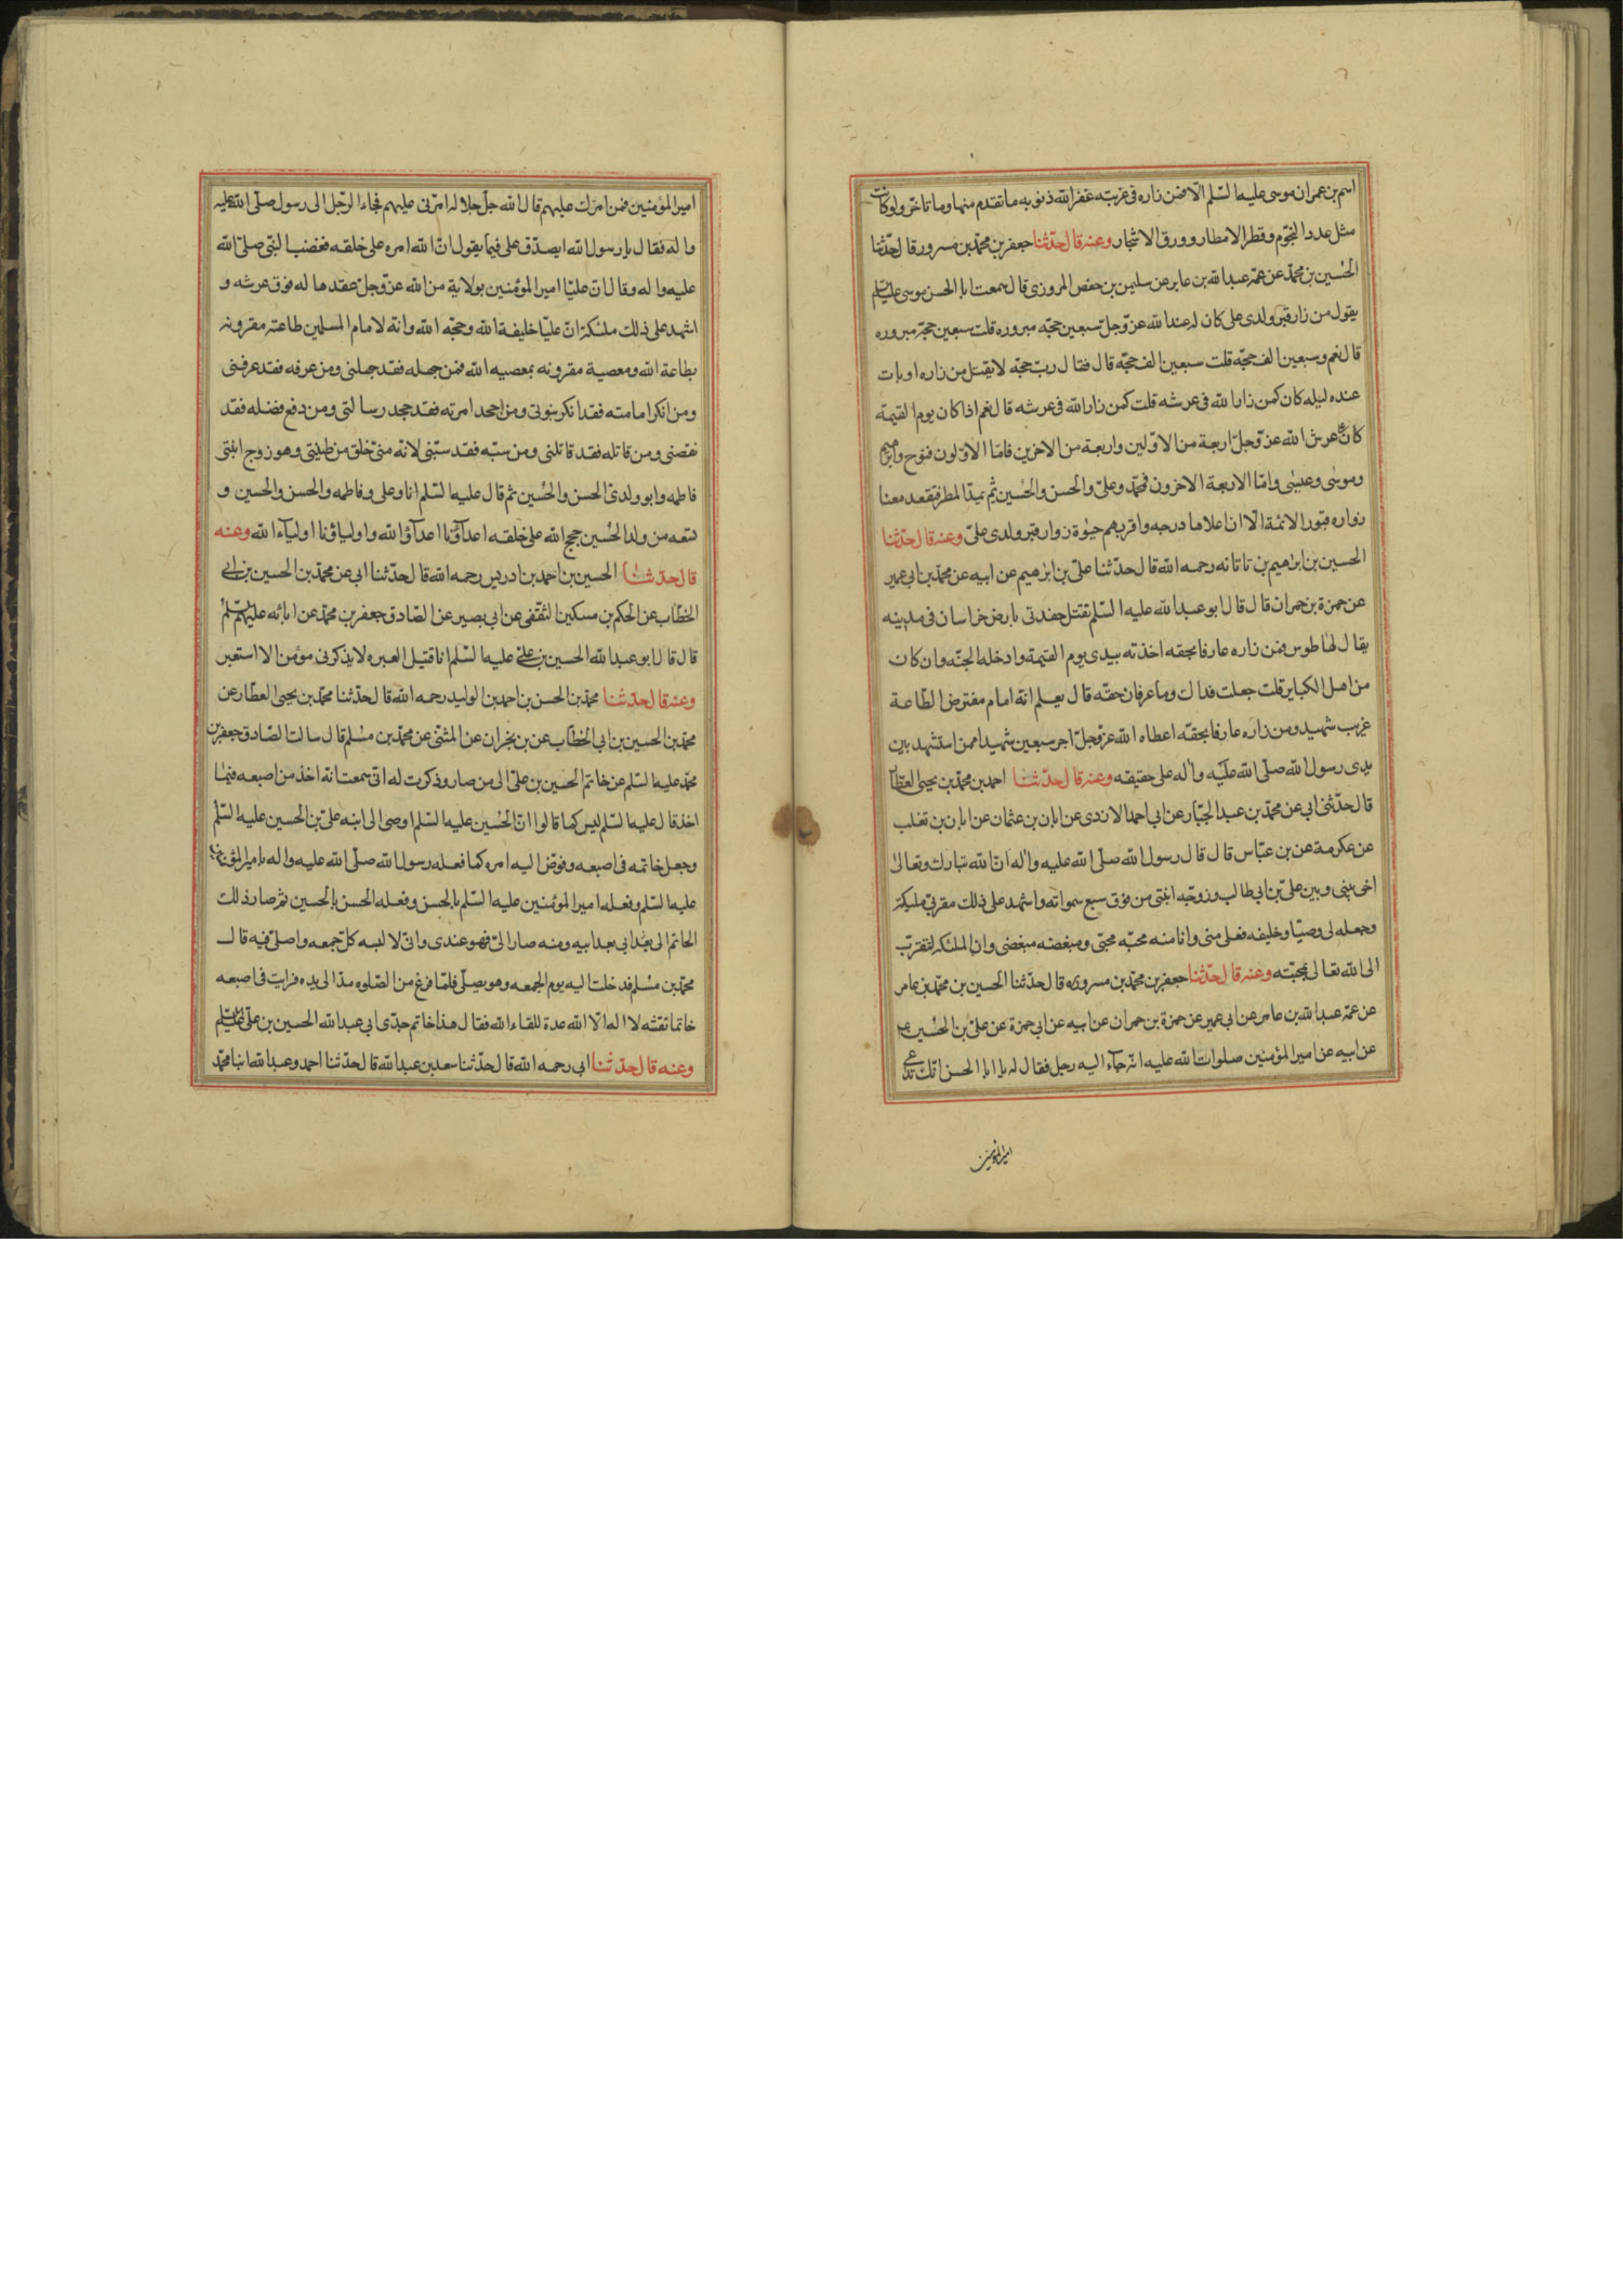 اسم بن عمران موسى عليه السّلم الا فمن زاره فى غربته غفر الله ذنوبه ما تقدم منها وما تاخر ولو كانت
مثل عدد النجوم وقطر الامطار وورق الاشجار وعنه قال حدّثنا جعفر بن محمّد بن مسرور قال حدّثنا
الحسين بن محمّد عن عمّه عبد الله بن عامر عن سليمن بن حفص المروزى قال سمعت ابا الحسن موسى عليه السلم
يقول من زار قبر ولدى على كان له عند الله عزّ وجلّ سبعين حجّه مبروره قلت سبعين حجّه مبروره
قال نعم وسبعين الف حجّه قلت سبعين الف حجّه قال فقال ربّ حجّه لا يقتل من زاره او بات
عنده ليله كان كمن زار الله فى عرشه قلت كمن زار الله فى عرشه قال نعم اذا كان يوم القيمة
كان على عرش الله عزّ وجلّ اربعة من الاوّلين واربعة من الاخرين فامّا الاوّلون فنوح وابرهيم
وموسى وعيسى وامّا الاربعة الاخرون فمحمّد وعلىّ والحسن والحسين ثم يمدّ المطر فيقعد معنا
زواره قبور الائمّة الّا ان اعلاها درجه واقربهم حبوة زوار قبر ولدى علىّ وعنه قال حدّثنا
الحسين بن ابرهيم بن تاتانه رحمه الله قال حدّثنا علىّ بن ابرهيم عن ابيه عن محمّد بن ابى عمير
عن حمزة بن حمران قال قال ابو عبد الله عليه السّلم يقتل حفدتى بارض خراسان فى مدينه
يقال لها طوس فمن زاره عارفا بحقه اخذته بيدى يوم القيمة وادخله الجنّه وان كان
من اهل الكباير قلت جعلت فداك وما عرفان حقّه قال يعلم انّه امام مفترض الطّاعة
غريب شهيد ومن زاره عارفا بحقّه اعطاه الله عزّ وجلّ اجر سبعين شهيدا ممن استشهد بين
يدى رسول الله صلّى الله عليه واله على حقيقه وعنه قال حدّثنا احمد بن محمّد بن يحيى العطّار
قال حدّثنى ابى عن محمّد بن عبد الجبّار عن ابى احمد الازدى عن ابان بن عثمان عن ابان بن تغلب
عن عكرمة عن بن عبّاس قال قال رسول الله صلّى الله عليه واله انّ الله تبارك وتعالى
اخى بينى وبين علىّ بن ابى طالب وزوّجه ابنتى من فوق سبع سمواته واشهد على ذلك مقربى مليكته
وجعله لى وصيّا وخليفه فعلى منى وانا منه محبّه محبّى ومبغضه مبغضى وان الملئكه لتقترب
الى الله تعالى بمحبّته وعنه قال حدّثنا جعفر بن محمّد بن مسرور ره قال حدّثنا الحسين بن محمّد بن عامر
عن عمّه عبد الله بن عامر عن ابى عمير عن حمزة بن حمران عن ابيه عن ابى حمزة عن علىّ بن الحسين ع
عن ابيه عن امير المؤمنين صلوات الله عليه انّه جآء اليه رجل فقال له يا ابا الحسن انّك تدعى
امير المؤمنين
امير المؤمنين فمن امّرك عليهم قال الله جلّ جلاله امّرنى عليهم فجاء الرّجل الى رسول صلّى الله عليه
واله فقال يا رسول الله ايصدّق على فيما يقول انّ الله امره على خلقه فغضب النّبى صلّى الله
عليه واله وقال انّ عليّا امير المؤمنين بولاية من الله عزّ وجلّ عقدها له فوق عرشه و
اشهد على ذلك ملئكته انّ عليّا خليفة الله وحجّه الله وانّه لامام المسلمين طاعته مقرونه
بطاعة الله ومعصية مقرونه بمعصيه الله فمن جهله فقد جهلنى ومن عرفه فقد عرفنى
ومن انكر امامته فقد انكر نبوتى ومن اجحد امرته فقد جحد رسالتى ومن دفع فضله فقد
نقصنى ومن قاتله فقد قاتلنى ومن سبّه فقد سبّنى لانّه منّى خلق من طينتى وهو زوج ابنتى
فاطمه وابو ولدىّ الحسن والحسين ثم قال عليه السّلم انا وعلى وفاطمه والحسن والحسين و
تسعه من ولد الحسين حجج الله على خلقه اعدآؤنا اعدآؤ الله واولياؤنا اوليآء الله وعنه
قال حدّثنا الحسين بن احمد بن ادريس رحمه الله قال حدّثنا ابى عن محمّد بن الحسين بن ابى
الخطّاب عن الحكم بن مسكين الثقفى عن ابى بصير عن الصّادق جعفر بن محمّد عن ابائه عليهم السّلم
قال قال ابو عبد الله الحسين بن علىّ عليه السّلم انا قتيل العبره لا يذكرنى مؤمن الا استعبر
وعنه قال حدّثنا محمّد بن الحسن بن احمد بن الوليد رحمه الله قال حدّثنا محمّد بن يحيى العطّار عن
محمّد بن الحسين بن ابى الخطّاب عن بن نجران عن المثنّى عن محمّد بن مسلم قال سالت الصّادق جعفر بن
محمّد عليه السّلم عن خاتم الحسين بن علىّ الى من صار وذكرت له انّى سمعت انّه اخذ من اصبعه فيما
اخذ قال عليه السّلم ليس كما قالوا انّ الحسين عليه السّلم اوصى الى ابنه علىّ بن الحسين عليه السّلم
وجعل خاتمه فى اصبعه وفوّض اليه امره كما فعله رسول الله صلّى الله عليه واله بامير المؤمنين
عليه السّلم وفعله امير المؤمنين عليه السّلم بالحسن وفعله الحسن بالحسين ثم صار ذلك
الخاتم الى بعد ابى بعد ابيه ومنه صار الىّ فهو عندى وانّى لا لبسه كلّ جمعه واصلّى فيه قال
محمّد بن مسلم فدخلت اليه يوم الجمعه وهو يصلّى فلمّا فرغ من الصّلوه مدّ الى يده فرايت فى اصبعه
خاتما نقشه لا اله الّا الله عدة للقاء الله فقال هذا خاتم جدّى ابى عبد الله الحسين بن علىّ عليه السلم
وعنه قال حدّثنا ابى رحمه الله قال حدّثنا سعد بن عبد الله قال حدّثنا احمد وعبد الله ابنا محمّد